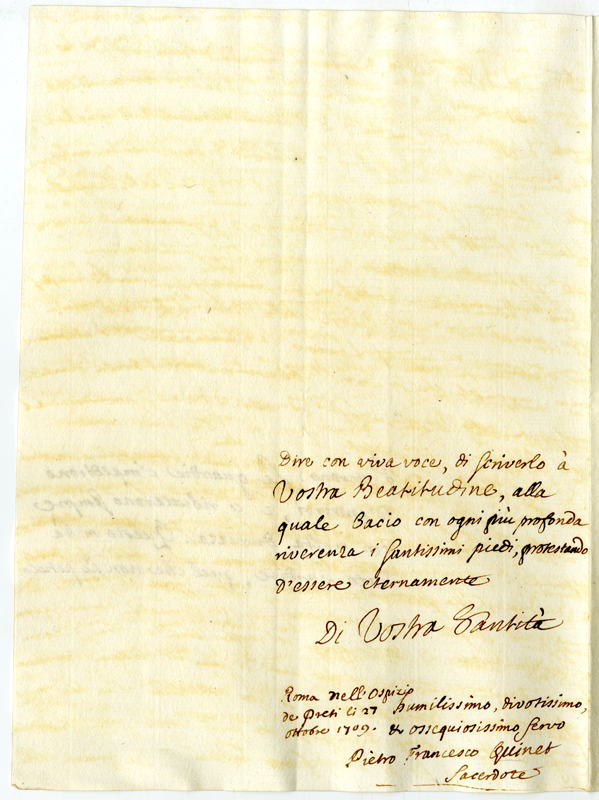 Dire con viva voce, di scriverlo à
Vostra Beatitudine, alla
quale bacio con ogni più profonda
riverenza i santissimi piedi, protestando
d'essere eternamente
Di Vostra Santità
Roma nell'Ospizio
de Preti li 27
ottobre 1709.
humilissimo, divotissimo,
& ossequiosissimo servo
Pietro Francesco Quinet
Sacerdote